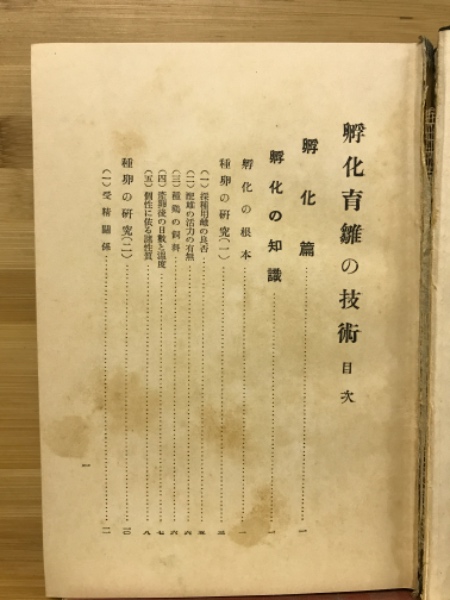 孵化育雛の技術 目次
孵化篇 一
孵化の知識 一
孵化の根本 一
種卵の研究(一) 三
(一)採種用雌の良否 五
(二)配雄の活力の有無 六
(三)種鶏の飼料 六
(四)産卵後の日数と温度 七
(五)個性に依る諸性質 八
種卵の研究(二) 一〇
(一)受精關係 一一
一